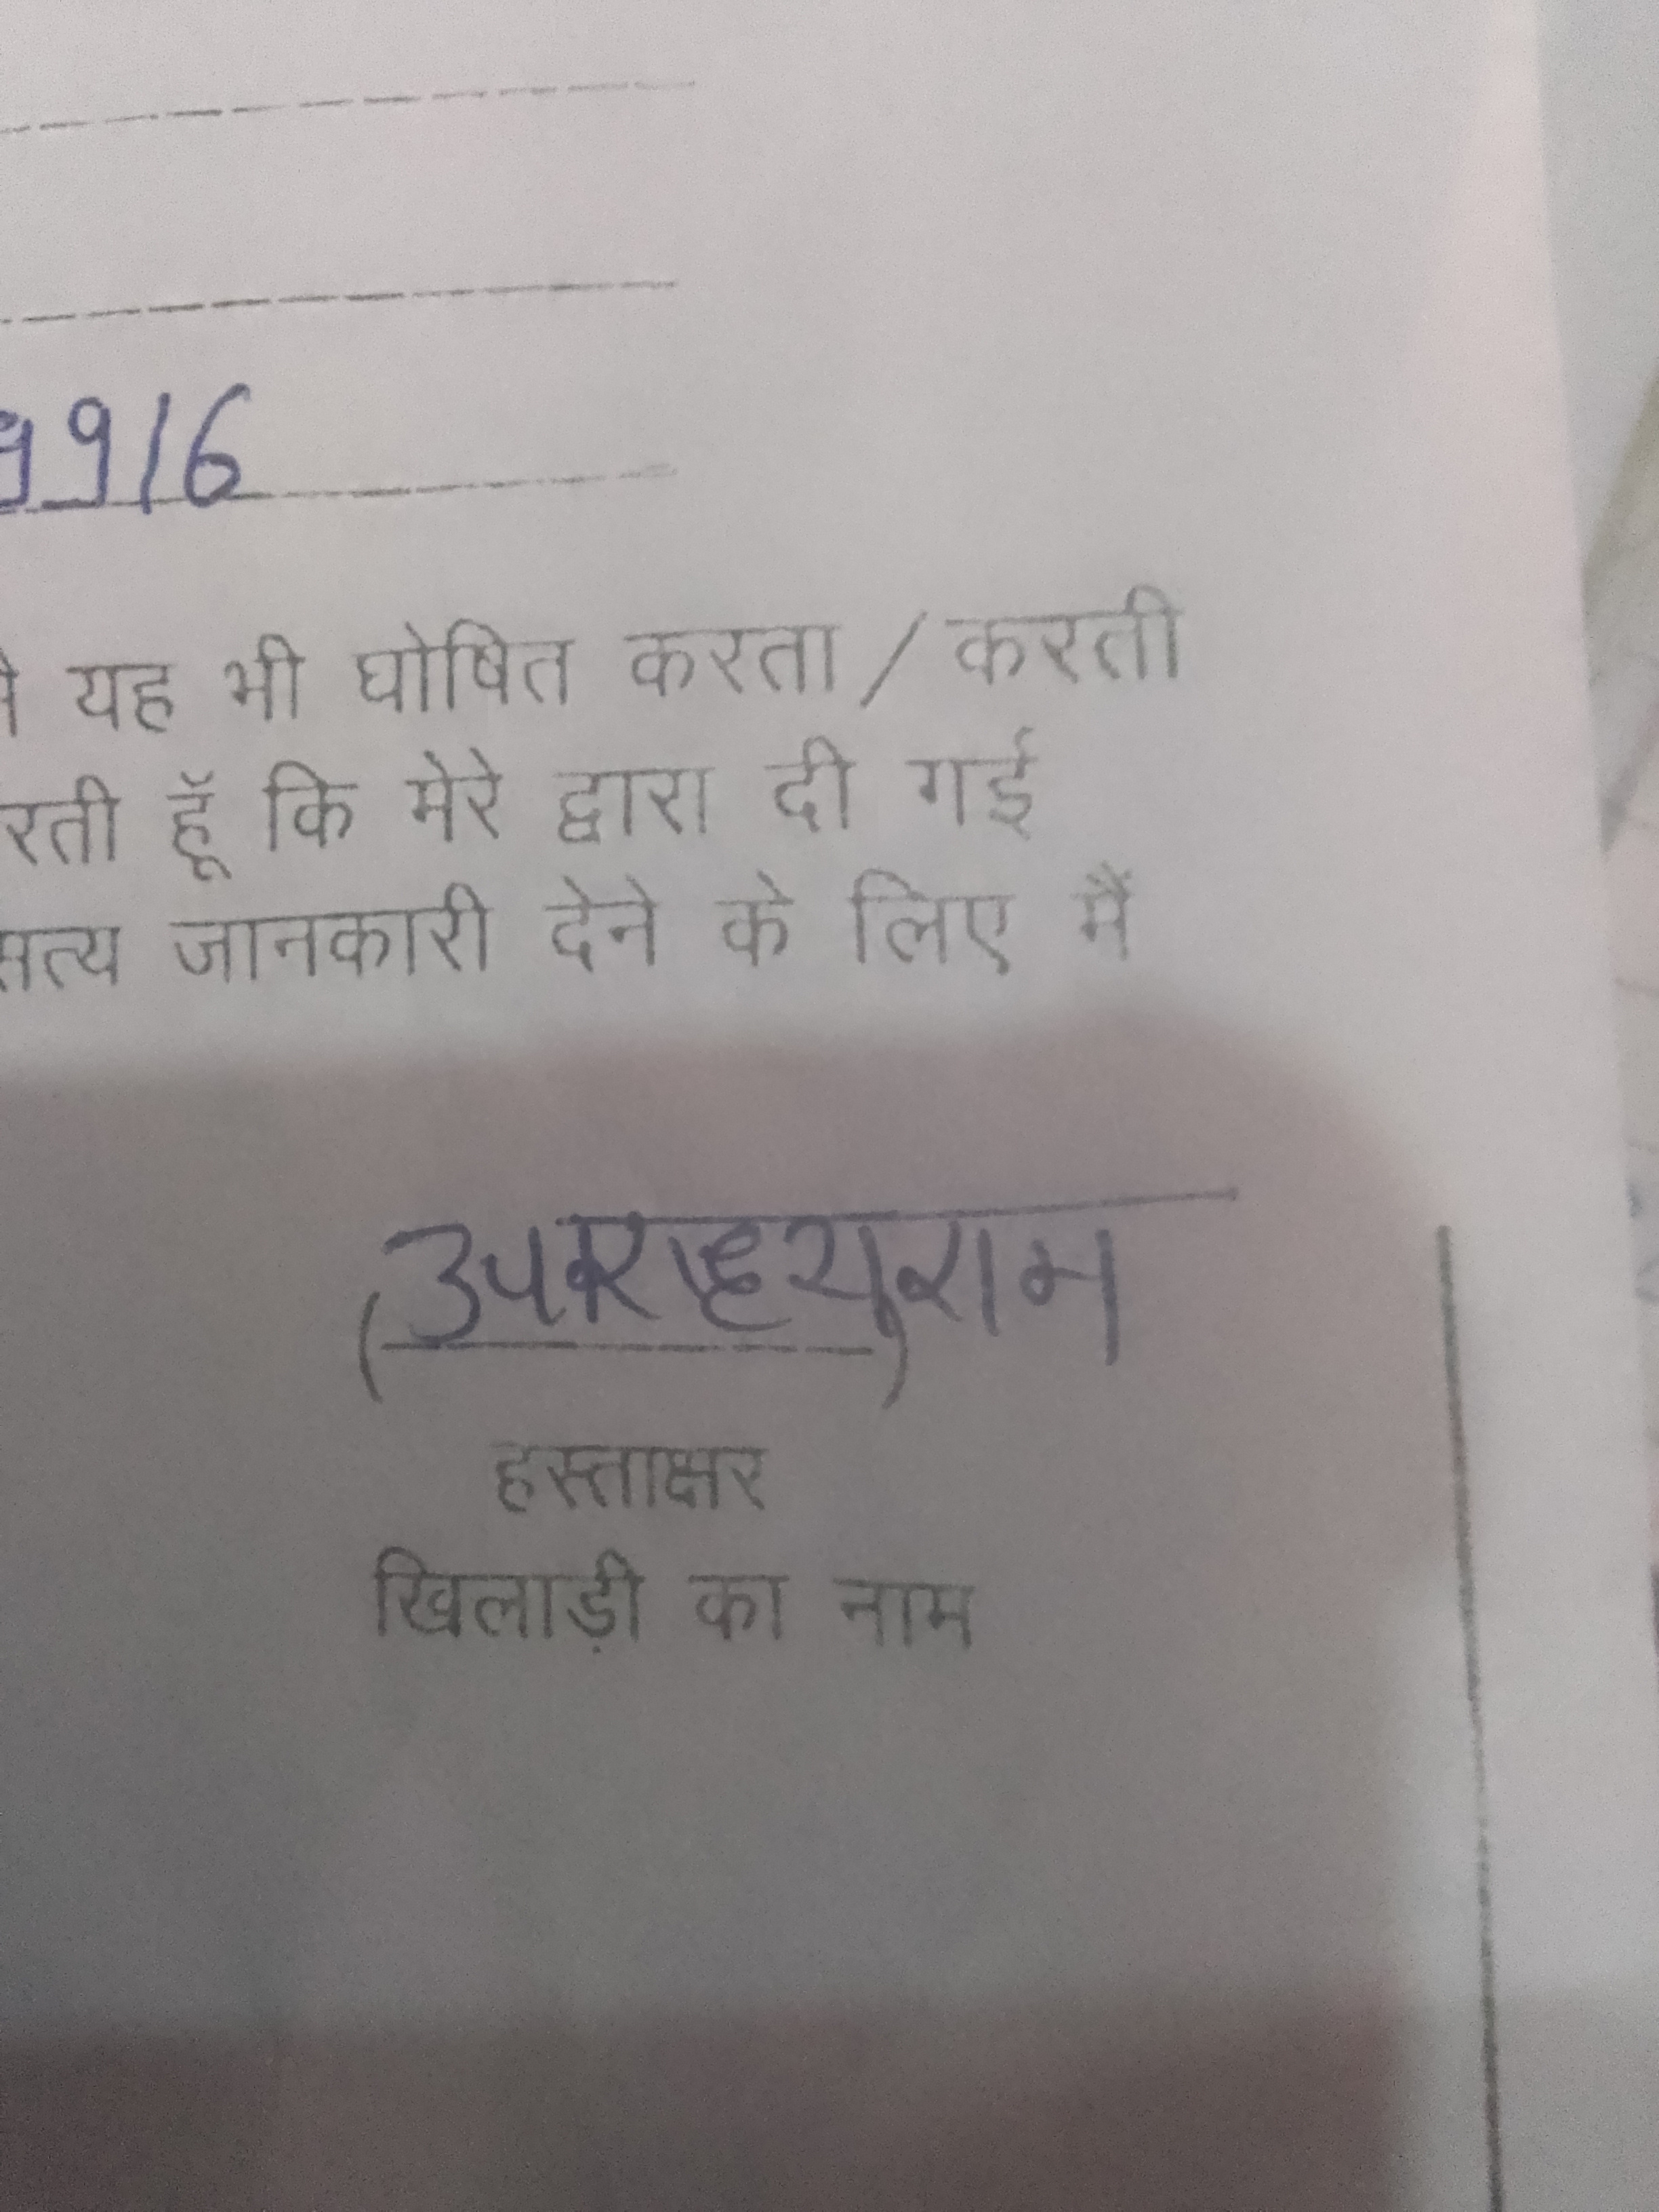 9916
यह भी घोषित करता / करती
रती हूॅ कि मेरे द्वारा दी गई
सत्य जानकारी देने के लिए मैं
हस्ताक्षर
खिलाड़ी का नाम